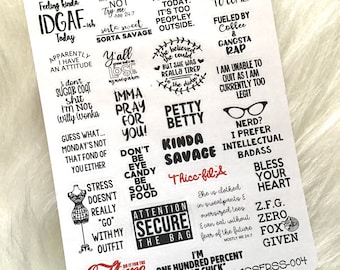 Feeling kinda
IDGAF-ish
Today
NOT
Try me
sorta sweet
SORTA SAVAGE
TODAY.
IT'S TOO
PEOPLEY
OUTSIDE.
FUELED BY
Coffee
&
GANGSTA
RAP
APPARENTLY
I HAVE
AN ATTITUDE
Y'all
She believed she
could
BUT SHE WAS
REALLY TIRED
I AM UNABLE TO
QUIT AS I AM
CURRENTLY TOO
LEGIT
I don't
SUGAR COAT
Shit
I'M NOT
Willy Wonka
IMMA
PRAY
FOR
YOU!
PETTY
BETTY
NERD?
I PREFER
INTELLECTUAL
BADASS
GUESS WHAT...
MONDAY'S NOT
THAT FOND OF
YOU EITHER
DON'T
BE
EYE
CANDY
BE
SOUL
FOOD
KINDA
SAVAGE
Thicc-fil-A
BLESS
YOUR
HEART
STRESS
DOESN'T
REALLY
"GO"
WITH MY
OUTFIT
ATTENTION
SECURE
THE BAG
She is clothed
in sweatpants &
oversized tees
& can out without
fear of the future
Z.F.G.
ZERO
FOX
GIVEN
I'M
ONE HUNDRED PERCENT